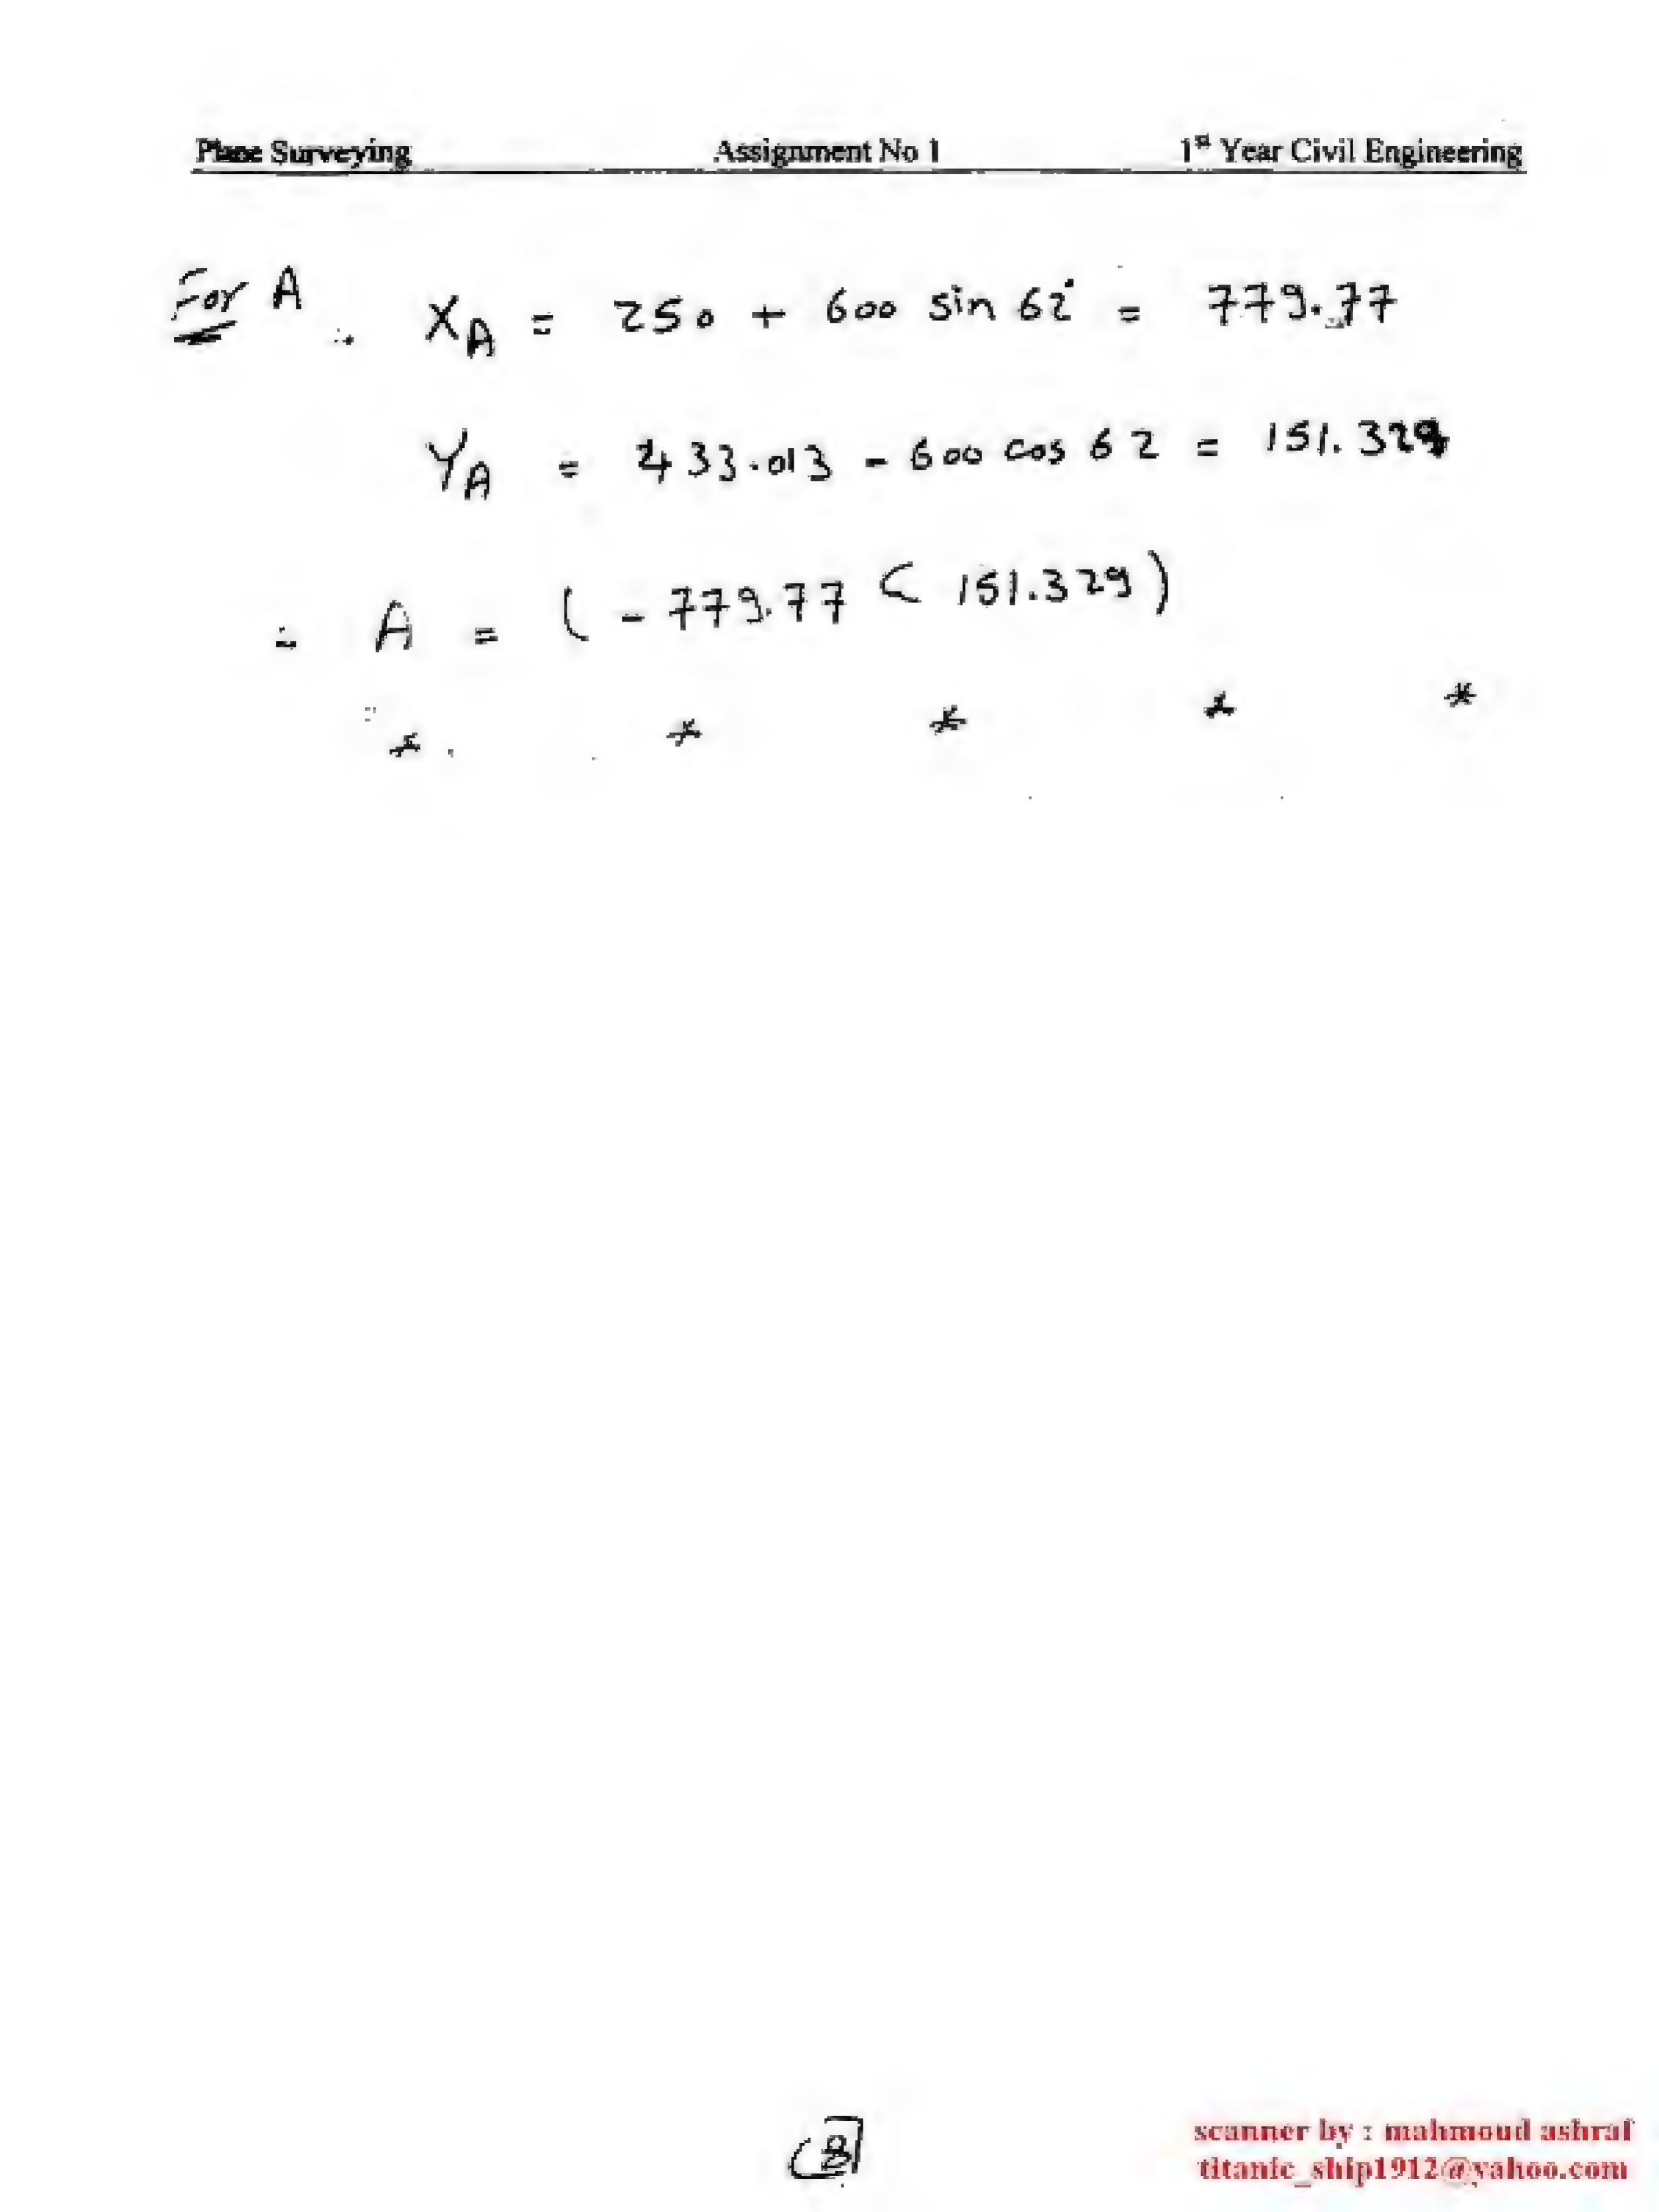 Plane Surveying Assignment No 1 1st Year Civil Engineering
For A ∴ XA = 250 + 600 sin 62° = 779.77
YA = 433.013 - 600 cos 62 = 151.329
∴ A = ( - 779.77 ( 151.329 )
* * * * *
8
scanner by : mahmoud ashraf
titanic_ship1912@yahoo.com